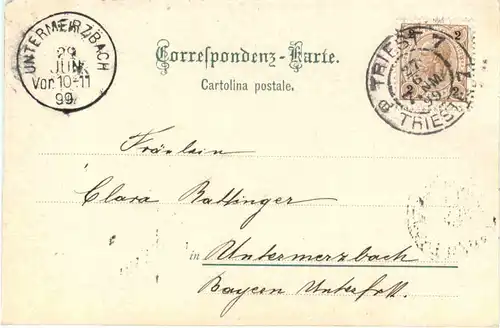 UNTERMERZBACH
29
JUN.
Vor.10-11
99
Correspondenz-Karte.
Cartolina postale.
TRIEST 7
27
6
99
TRIEST
2 2
2 2
Fräulein
Clara Battinger
in Untermerzbach
Bayern Unterfrk.